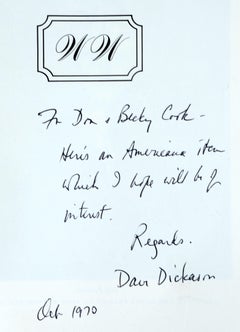 WW
For Don & Becky Cook -
Here's an Americana item
which I hope will be of
interest.
Regards.
Dave Dickason
Oct 1970